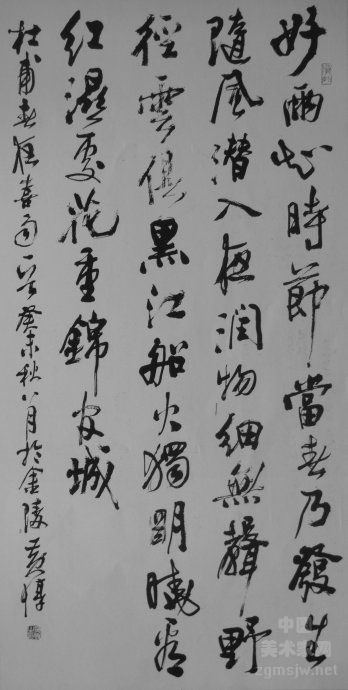 好雨知時節當春乃發生
隨風潛入夜潤物細無聲野
徑雲俱黑江船火獨明曉看
红濕處花重錦官城
杜甫春夜喜雨一首癸未秋八月於金陵黄惇
中国
美术家网
zgmsjw.net